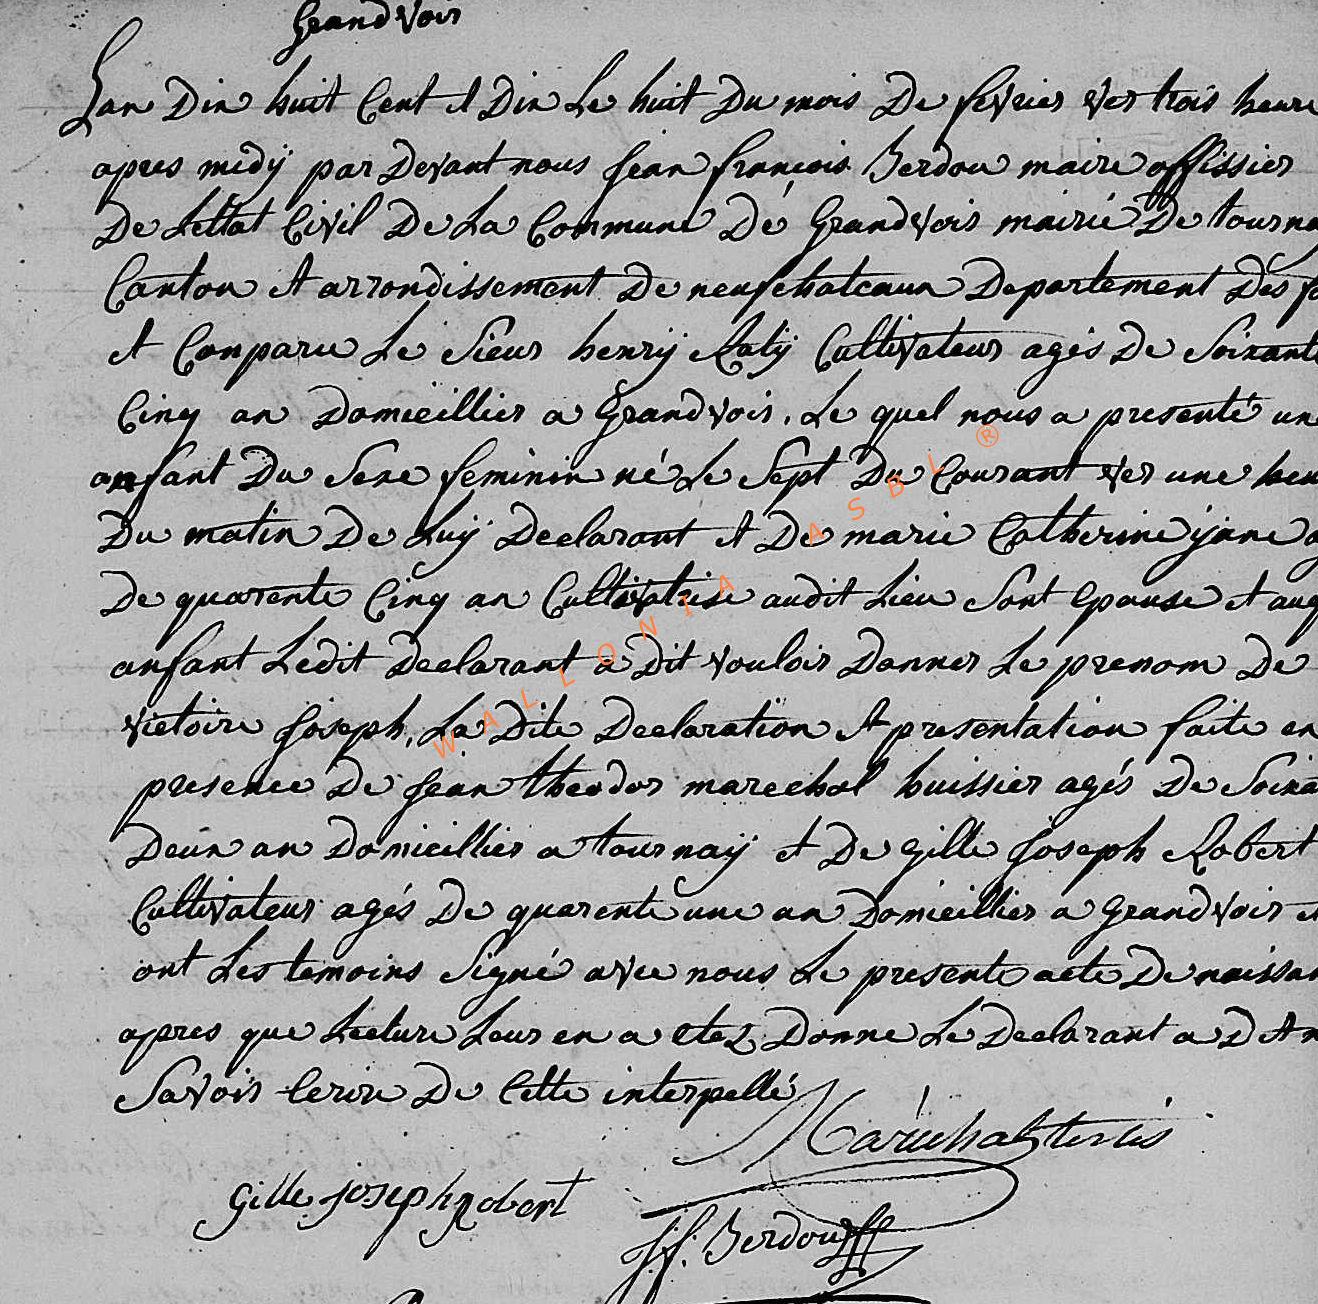 Grandvoir
Lan Dix huit Cent et Dix Le huit Du mois De fevrier ver trois heure
apres midÿ par Devant nous Jean françois Berdou maire offissier
De Lettat Civil De La Commune Dé Grandvoir mairie De tourna
Canton et arrondissement De neufchateaux Departement Des fo
et Conparu Le Sieur henrÿ Rolÿ Cultivateur agés De Soixante
Cinq an Domicillier a Grandvoir. Le quel nous a presenté un
anfant Du Sexe feminin né Le Sept Du Courant ver une heu
Du matin De Luÿ Declarant et De marie Catherine ÿane a
De quarente Cinq an Cultivatrise audit Lieu Sont Epouse et auq
anfant Ledit Declarant a Dit vouloir Donner Le prenom De
victoire Joseph, La Dite Declaration et presentation faite en
presence De Jean theodor marechal huissier agés De Soixa
Deux an Domicillier a tournaÿ et De gille Joseph Robert
Cultivateur agés De quarente une an Domicillier a Grandvoir et
ont Les temoins Signé avec nous Le presente acte De naissan
apres que Lecture Leur en a etez Donne Le Declarant a D
Savoir Ecrire De Cette interpellé
Maréchal
Gille joseph Robert
J. f. Berdou
WALLONIA ASBL ®